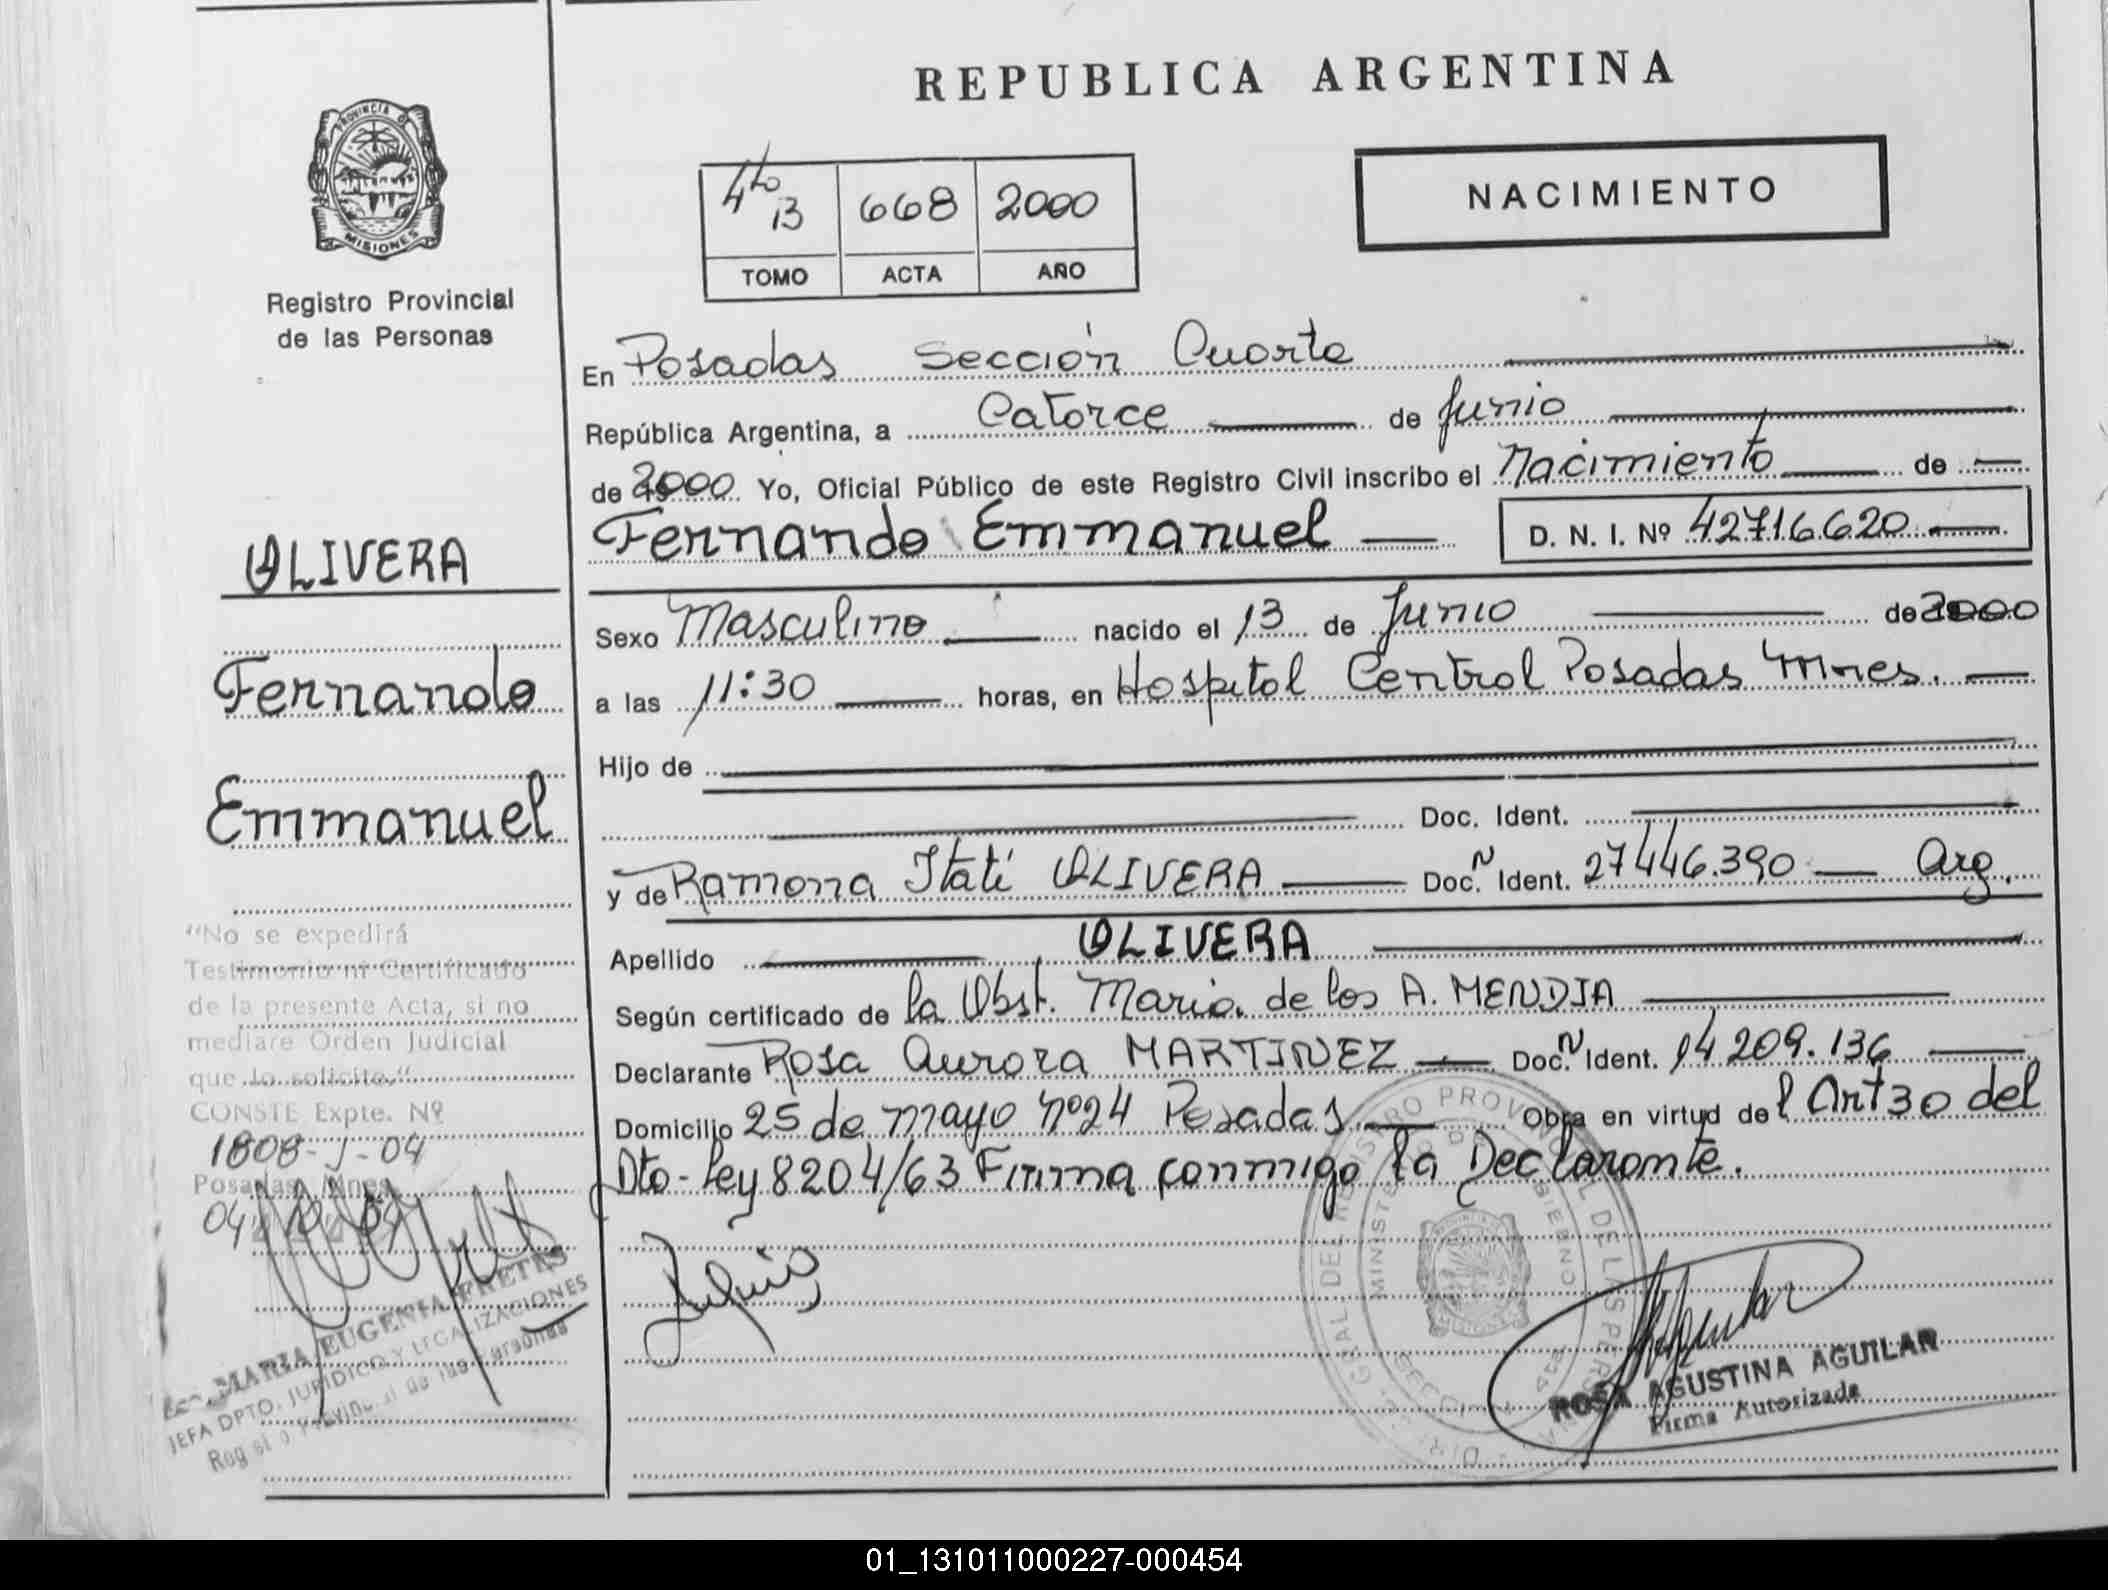 REPUBLICA ARGENTINA
PROVINCIA D
MISIONES
Registro Provincial
de las Personas
4to 13 668 2000
TOMO ACTA AÑO
NACIMIENTO
En Posadas Sección Cuarta
República Argentina, a Catorce de Junio
de 2000 Yo, Oficial Público de este Registro Civil inscribo el Nacimiento de
Fernando Emmanuel D. N. I. Nº 42716620
Sexo Masculino nacido el 13 de Junio de 2000
a las 11:30 horas, en Hospital Central Posadas Mnes.
Hijo de
Doc. Ident.
y de Ramona Itatí OLIVERA Doc. N Ident. 27446.390 Arg.
Apellido OLIVERA
Según certificado de la Obst. Maria de los A. MENDIA
Declarante Rosa Aurora MARTINEZ Doc. N Ident. 14209.136
Domicilio 25 de mayo nº24 Posadas Obra en virtud del Art 30 del
Dto-Ley 8204/63 Firma conmigo la Declarante.
OLIVERA
Fernando
Emmanuel
"No se expedirá
Testimonio ni Certificado
de la presente Acta, si no
mediare Orden Judicial
que lo solicite."
CONSTE Expte. Nº
1808-J-04
Posadas, Mnes
MARIA EUGENIA FRETES
JEFA DPTO. JURIDICO Y LEGALIZACIONES
ROSA AGUSTINA AGUILAR
Firma Autorizada
01_131011000227-000454